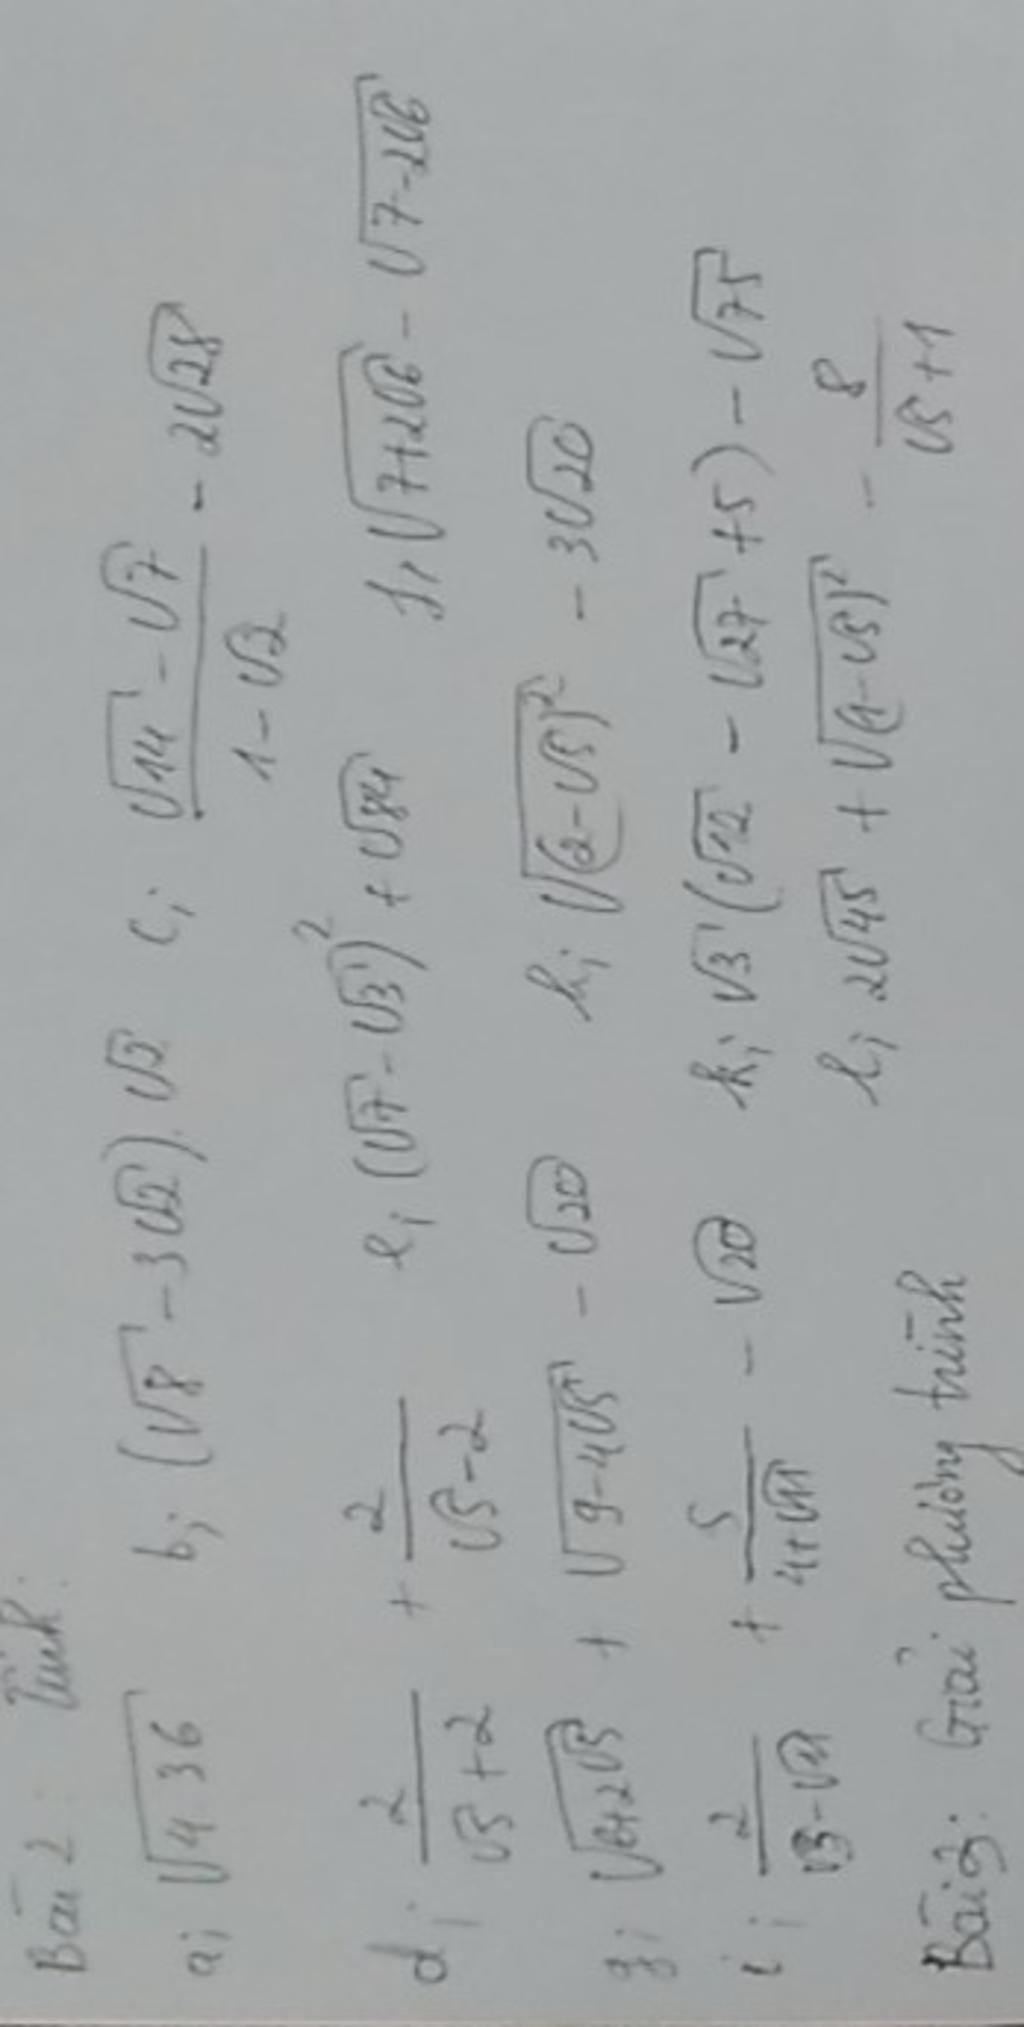 Bài 2: Tính:
a; √(4.36) b; (√8 - 3√2).√2 c; (√14 - √7)/(1 - √2) - 2√28
d; 2/(√5 + 2) + 2/(√5 - 2) e; (√7 - √3)² + √84 f; √(7+2√6) - √(7-2√6)
g; √(6+2√5) + √(9-4√5) - √20 h; √((2-√5)²) - 3√20
i; + 5/(4+√11) - √20 k; √3(√12 - √27 + 5) - √75
l; 2√45 + √((1-√5)²) - 8/(√5+1)
Bài 3: Giải phương trình